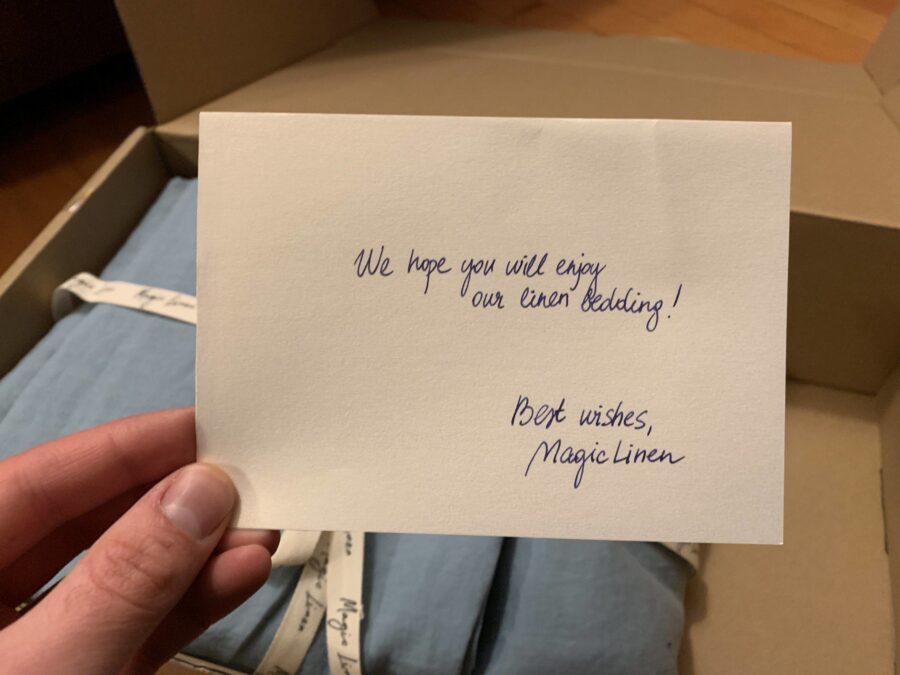 We hope you will enjoy
our linen bedding!
Best wishes,
MagicLinen
Magic Linen
Magic Li